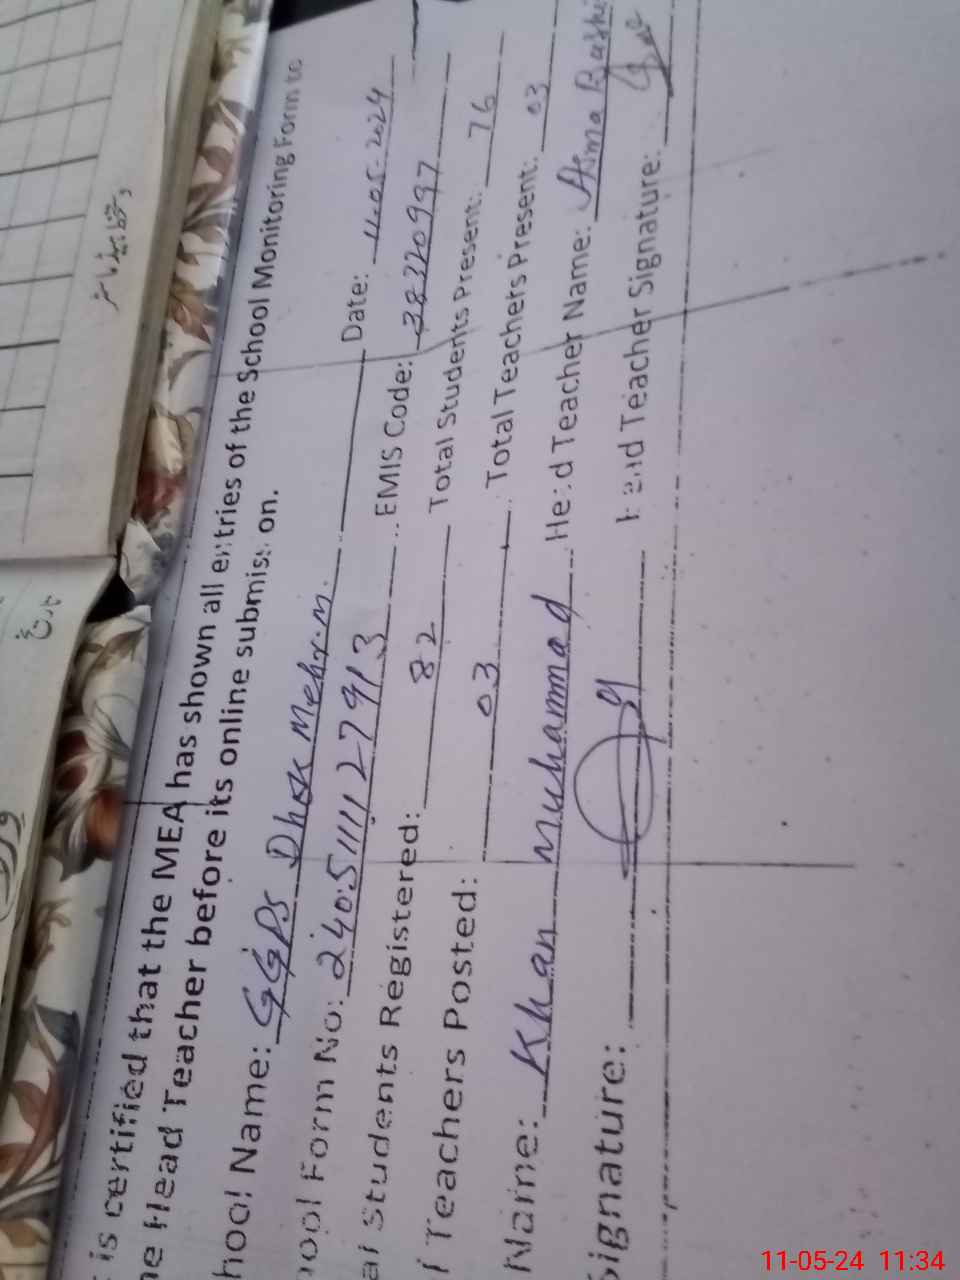 is certified that the MEA has shown all entries of the School Monitoring Form to
Head Teacher before its online submission.
hool Name: GGPS Dhok Mehr.M. Date: 11.05.2024
ool Form No: 2405111127913 EMIS Code: 38320997
al Students Registered: 82 Total Students Present: 76
Teachers Posted: 03 Total Teachers Present: 03
Name: Khan Muhammad Head Teacher Name: Asma Bashi
Signature: Head Teacher Signature:
11-05-24 11:34